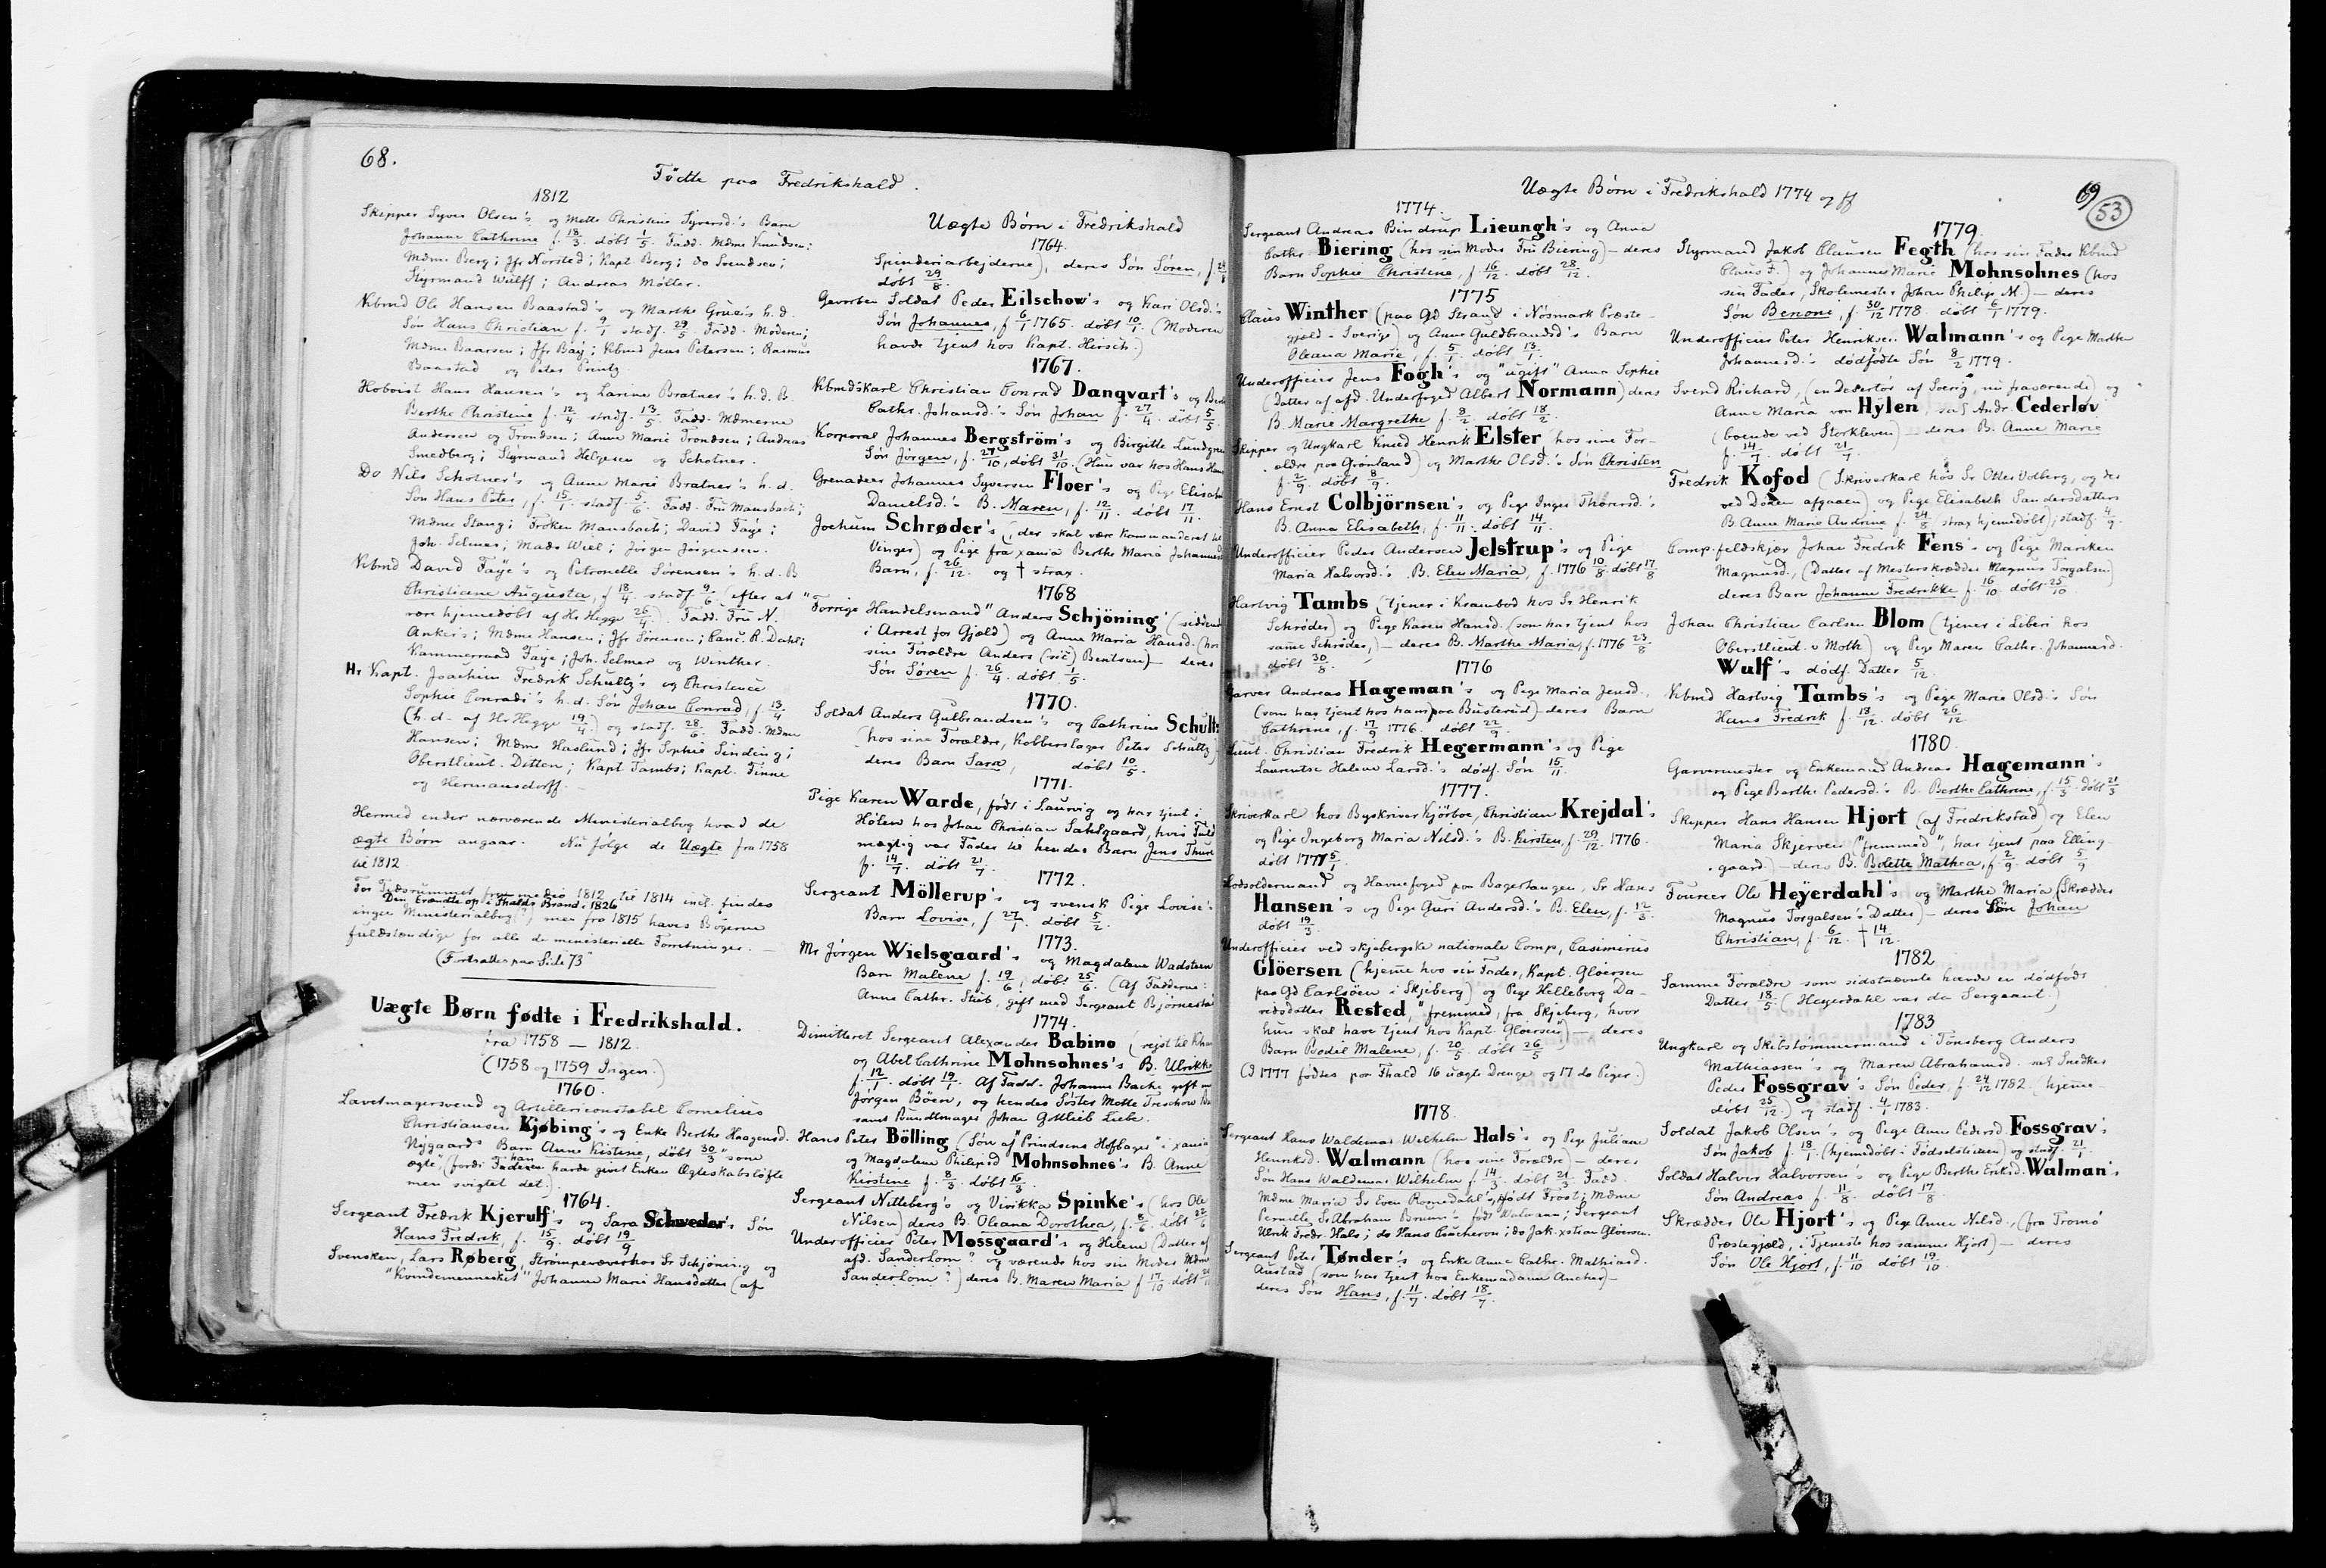 68.
Födte paa Fredrikshald.
1812
Skipper Syver Olsen's og Mette Christine Syversd.'s Barn
Johanne Cathrine f. 18/3. döbt 1/5. Fadd. Mdme Knudsen;
Mdme Berg; Jfr Norsted; Kapt. Berg; do Svendsen;
Styrmand Wulff; Andreas Möller.
Kbmd Ole Hansen Baastad's og Marthe Grue's h. d.
Søn Hans Christian f. 9/1 stadf. 29/5. Fadd. Moderen;
Mdme Baarsen; Jfr Baÿ; Kbmd Jens Petersen; Rasmus
Baastad og Peter Printz
Hoboist Hans Hansen's og Larine Bratner's h. d. B.
Berthe Christine f. 12/4 stadf. 13/5. Fadd. Mdmerne
Andersen og Trondsen; Anne Marie Trondsen; Andreas
Smedberg; Styrmand Helgesen og Schotner.
Do Nils Schotner's og Anne Marie Bratner's h. d.
Søn Hans Peter, f. 15/1. stadf. 5/6. Fadd. Fru Mansbach;
Mdme Stang; Frøken Mansbach; David Faÿe;
Joh. Selmer; Mads Wiel; Jörgen Jörgensen.
Kbmd David Faÿe's og Petronelle Sörensen's h. d. B
Christiane Augusta, f 18/4. stadf. 9/6 (efter at
være hjemedøbt af Hr Hegge 26/4). Fadd. Fru N.
Anker's; Mdme Hansen; Jfr Sörensen; Canc. R. Dahl;
Kammerraad Faÿe; Joh. Selmer og Winther.
Hr Kapt. Joachim Fredrik Schultz's og Christence
Sophie Conradi's h. d. Søn Johan Conrad, f. 13/4
(h. d. af Hr Hegge 19/4) og stadf. 28/6. Fadd. Mdme
Hansen; Mdme Haslund; Jfr Sophie Sinding;
Oberstlieut. Ditten; Kapt. Tambs; Kapt. Finne
og Hermansdorff.
Hermed ender nærværende Ministerialbog hvad de
ægte Børn angaar. Nu følge de Uægte fra 1758
til 1812.
For Tidsrummet fra medio 1812 til 1814 incl. findes
Den brændte op i Fhalds Brand i 1826
ingen Ministerialbog(?) men fra 1815 haves Bøgerne
fuldstændige for alle de ministerielle Forretninger. —
(Fortsættes paa Side 73)
Uægte Børn fødte i Fredrikshald.
fra 1758 — 1812.
(1758 og 1759 Ingen.)
1760.
Lavetmagersvend og Artillericonstabel Cornelius
Christiansen Kjøbing's og Enke Berthe Haagensd.
Nÿgaards Barn Anne Kistine, döbt 30/3 "som
ægte", (fordi Faderen havde givet Enken Ægteskabsløfte
han
men svigtet det.)
1764.
Sergeant Fredrik Kjerulf's og Sara Schweder's Søn
Hans Fredrik, f. 15/9. döbt 19/9
Svensken, Lars Røberg, Strømpevæver hos Sr Schjöning og
"Kvindemennesket" Johanne Marie Hansdatter (af
Uægte Børn i Fredrikshald
1764.
Spinderiarbejderne), deres Søn Søren, f. 24/8
døbt 29/8.
Gevorben Soldat Peder Eilschow's og Kari Olsd.'s
Søn Johannes, f 6/1 1765. döbt 10/1. (Moderen
havde tjent hos Kapt. Hirsch.)
1767.
Kbmdskarl Christian Conrad Danqvart's og Berthe
Cathr. Johansd.'s Søn Johan f. 27/4. döbt 5/5.
Korporal Johannes Bergström's og Birgitte Lundgren
Søn Jörgen, f. 27/10, döbt 31/10. (Hun var hos Hans
Grenadeer Johannes Syversen Floer's og Pige Elisab
Danielsd.'s B. Maren, f. 12/11. döbt 17/11.
Jochum Schrøder's, (der skal være Kommanderet til
Vinger) og Pige fra Xania Berthe Maria Johannes
Barn, f. 26/12. og † strax.
1768
"Forrige Handelsmand" Anders Schjöning (siddende
i Arrest for Gjæld) og Anne Maria Hansd. (hos
sine Forældre Anders (sic) Bentsen) — deres
Søn Søren f. 26/4. döbt 1/5.
1770.
Soldat Anders Gulbrandsen's og Cathrine Schultz
(hos sine Forældre, Kobberslager Peter Schultz)
deres Barn Sara, döbt 10/5.
1771.
Pige Karen Warde, født i Laurvig og har tjent i
Hølen hos Johan Christian Sahlgaard, hvis Fuld
mægtig var Fader til hendes Barn Jens Thure
f. 14/7. döbt 21/7.
1772.
Sergeant Möllerup's og svensk Pige Lovise's
Barn Lovise, f 27/1. döbt 5/2.
1773.
Mr Jörgen Wielsgaard's og Magdalene Wadsteen
Barn Malene f. 19/6, döbt 25/6. (Af Fadderne:
Anne Cathr. Stub, gift med Sergeant Bjørnestad
1774.
Dimitteret Sergeant Alexander Babino (rejst til Kbhn
og Abel Cathrine Mohnsohnes's B. Ulrikke
f. 12/1. döbt 19/1. Af Fadd. Johanne Backe gift m
Jørgen Böen, og hendes Søster Mette Treschow
samt Bundtmager Johan Gottlieb Liebe.
Hans Peter Bölling (Søn af "Prindsens Hoflager" i Xania
og Magdalene Philipsd Mohnsohnes's B. Anne
Kirstine f. 8/3. döbt 16/3.
Sergeant Nitteberg's og Virikka Spinke's (hos Ole
Nilsen) deres B. Oleana Dorothea, f. 8/6. döbt 22/6
Underofficier Peter Mossgaard's og Helene (Datter af
afd. Sanderhom? og værende hos sin Moder Mdme
Sanderhom?) deres B. Maren Maria f 17/10 döbt
Uægte Børn i Fredrikshald 1774 og ff
69
53
1774.
Sergeant Andreas Bindrup Lieungh's og Anna
Cathr. Biering (hos sin Moder Fru Biering) — deres
Barn Sophie Christine, f. 16/12. döbt 28/12.
1775
Claus Winther (paa Gd Strand i Nösmark Præste-
gjeld i Sverig) og Anne Guldbrandsd's Barn
Oleana Marie, f. 5/1. döbt 13/1.
Underofficier Jens Fogh's og "ugift" Anna Sophie
(Datter af afd. Underfoged Albert Normann) deres
B. Marie Margrethe f. 8/2. döbt 18/2.
Skipper og Ungkarl Knud Henrik Elster (hos sine For-
ældre paa Grønland) og Marthe Olsd.'s Søn Christen
f. 2/9. döbt 8/9.
Hans Ernst Colbjörnsen's og Pige Inger Thorersd.'s
B. Anna Elisabeth, f. 11/11. döbt 14/11.
Underofficier Peder Andersen Jelstrup's og Pige
Maria Halvorsd.'s B. Elen Maria, f. 1776 10/8 döbt 17/8
Hartvig Tambs (tjener i Krambod hos Sr Henrik
Schrøder) og Pige Karen Hansd. (som har tjent hos
samme Schrøder,) — deres B. Marthe Maria, f. 1776 23/8
döbt 30/8.
1776
Garver Andreas Hageman's og Pige Maria Jensd.,
(som har tjent hos ham paa Busterud) — deres Barn
Cathrine, f. 17/9 1776. döbt 22/9.
Lieut. Christian Fredrik Hegermann's og Pige
Laurentse Helene Larsd.'s dödf. Søn 15/11.
1777.
Skriverkarl hos Byskriver Kjørboe, Christian Krejdal's
og Pige Ingeborg Maria Nilsd.'s B. Kirsten, f. 29/12. 1776.
döbt 1777 5/1
Lodsoldermand og Havnefoged paa Bagerhaugen, Sr Hans
Hansen's og Pige Guri Andersd.'s B. Elen, f. 12/3.
döbt 19/3.
Underofficier ved skjebergske nationale Comp, Casimirus
Glöersen (hjeme hos sin Fader, Kapt. Glöersen
paa Gd Carlsöen i Skjeberg) og Pige Helleborg Da-
vedsdatter Rested, "fremmed, fra Skjeberg, hvor
hun skal have tjent hos Kapt. Glöersen") — deres
Barn Bodil Malene, f. 20/5. döbt 26/5
(I 1777 fødtes paa Fhald 16 uægte Drenge og 17 do Piger.)
1778.
Sergeant Hans Waldemar Wilhelm Hals's og Pige Juliane
Henriksd. Walmann (hos sine Forældre) — deres
Søn Hans Waldemar Wilhelm f. 14/3. döbt 21/3. Fadd.
Mdme Maria Sr Even Romsdahl's, født Frost; Mdme
Pernille, Sr Abraham Bruun's født Walmann; Sergeant
Ulrik Fredr. Hals; do Hans Coucheron; do Jak. Xstian Glöersen.
Sergeant Peter Tønder's og Enke Anne Cathr. Mathiasd.
Austad (som har tjent hos Enkemadame Ancher) —
deres Søn Hans, f. 11/7. döbt 18/7.
1779.
Styrmand Jakob Clausen Fegth (hos sin Fader Kbmd
Claus F.) og Johanne Marie Mohnsohnes (hos
sin Fader, Skolemester Johan Philip M.) — deres
Søn Benoni, f. 30/12 1778 döbt 6/1 1779.
Underofficier Peter Henriksen Walmann's og Pige Marthe
Johannesd.'s dødfødte Søn 8/2 1779.
Svend Richard, (en Desertör af Sverig, nu fraværende) og
Anne Maria von Hÿlen, sal Andr. Cederløv
(boende ved Storkleven) — deres B. Anne Marie
f. 14/7. döbt 21/7.
Fredrik Kofod (Skriverkarl hos Sr Otter Volberg, og der
ved Døden afgaaen) og Pige Elisabeth Sandersdatters
B. Anne Marie Andrine f. 24/8 (strax hjemedøbt); stadf. 4/9.
Comp. feldskjær Johan Fredrik Fens's og Pige Mariken
Magnusd., (Datter af Mesterskrædder Magnus Torgalsen)
deres Barn Johanne Fredrikke f. 16/10. döbt 25/10.
Johan Christian Carlsen Blom (tjener i Liberi hos
Oberstlieut. v Moth) og Pige Maren Cathr. Johannesd.
Wulf's dödf. Datter 5/12.
Kbmd Hartvig Tambs's og Pige Marie Olsd.'s Søn
Hans Fredrik f. 18/12. döbt 26/12.
1780.
Garvermester og Enkemand Andreas Hagemann's
og Pige Barthe Pedersd.'s B. Berthe Cathrine, f. 15/3. döbt 21/3
Skipper Hans Hansen Hjort (af Fredrikstad) og Elen
Maria Skjerven ("fremmed", har tjent paa Elling-
gaard) — deres B. Bolette Mathea, f. 2/9. döbt 5/9
Fourer Ole Heÿerdahl's og Marthe Maria (Skrædder
Magnus Torgalsen's Datter) — deres Søn Johan
Christian, f. 6/12. † 14/12.
1782
Samme Forældre som sidstnævnte havde en dødfødt
Datter 18/5. (Heyerdahl var da Sergeant.)
1783
Ungkarl og Skibstømmermand i Tönsberg Anders
Mathiassen's og Maren Abrahamsd. sal Snedker
Peder Fossgrav's Søn Peder, f. 24/12 1782. (hjeme-
döbt 25/12.) og stadf. 4/1 1783.
Soldat Jakob Olsen's og Pige Anne Pedersd. Fossgrav's
Søn Jakob f. 18/1. (hjemedöbt i Fødselsstuen) og stadf. 21/1.
Soldat Halvor Halvorsen's og Pige Berthe Eriksd. Walman's
Søn Andreas f. 11/8. döbt 17/8.
Skrædder Ole Hjort's og Pige Anne Nilsd., (fra Tromö
Præstegjæld, i Tjeneste hos samme Hjort) — deres
Søn Ole Hjort, f. 11/10 döbt 19/10.